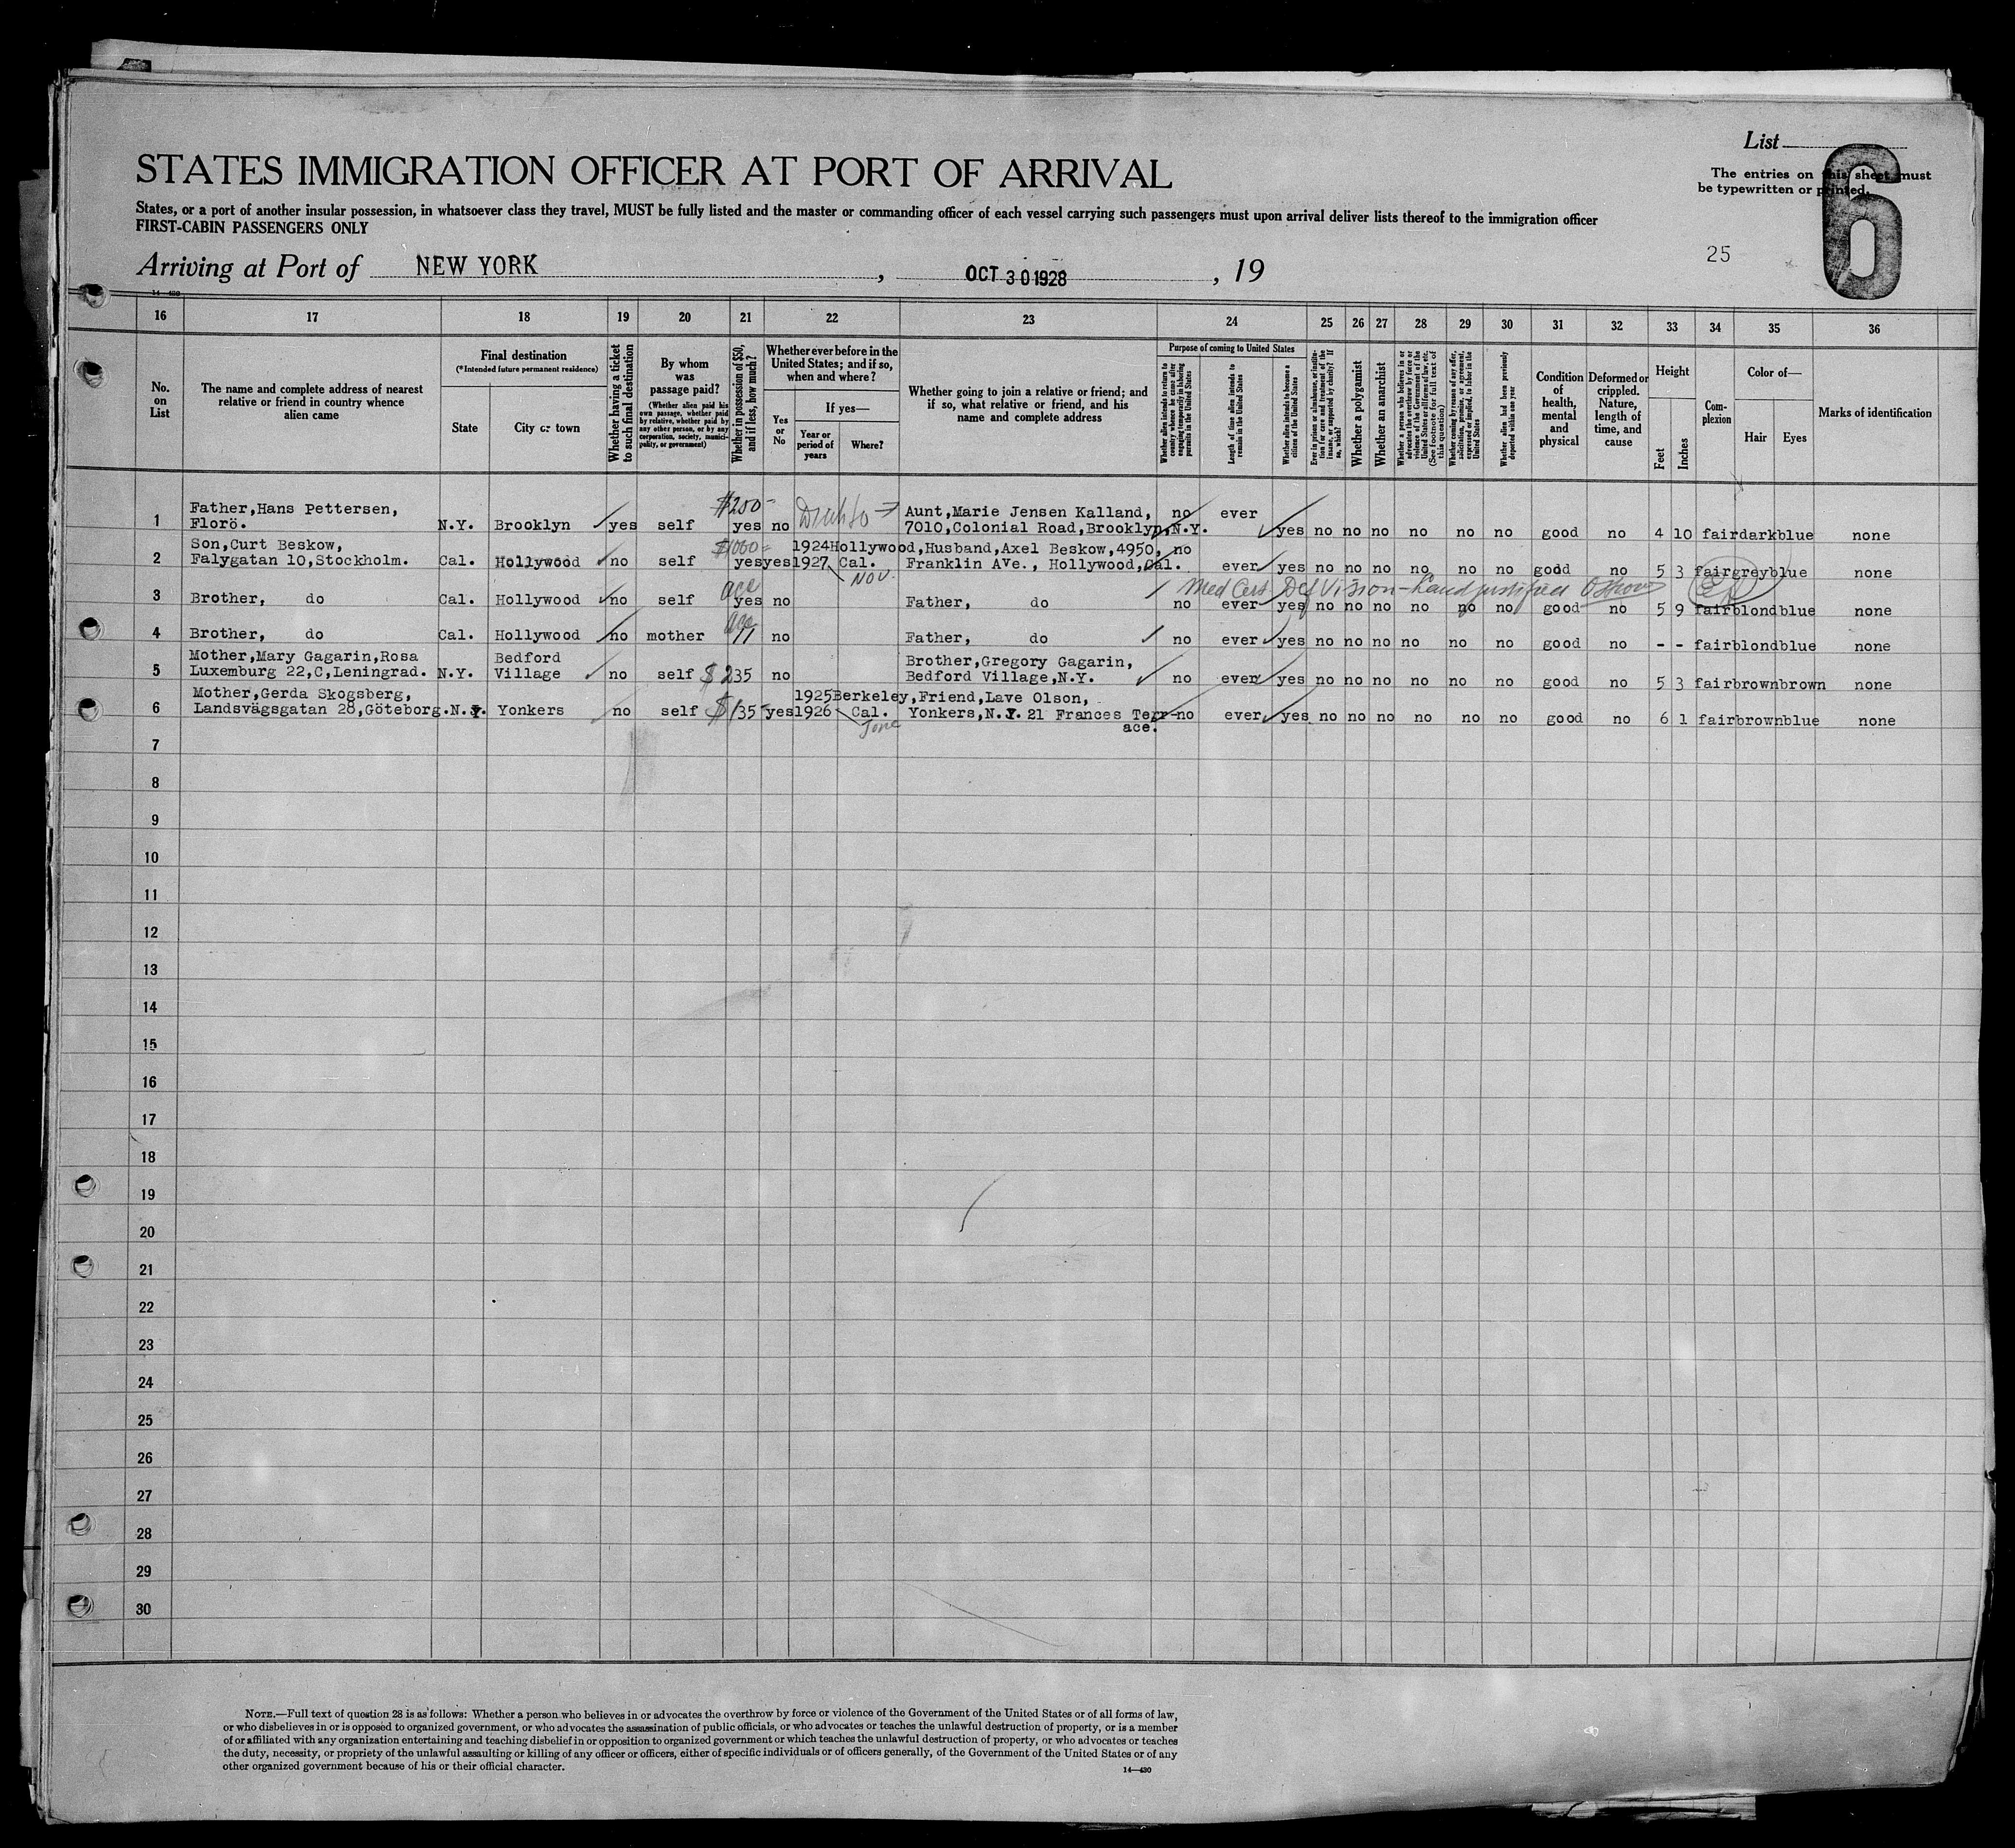 List
6
The entries on this sheet must
be typewritten or printed.
STATES IMMIGRATION OFFICER AT PORT OF ARRIVAL
States, or a port of another insular possession, in whatsoever class they travel, MUST be fully listed and the master or commanding officer of each vessel carrying such passengers must upon arrival deliver lists thereof to the immigration officer
FIRST-CABIN PASSENGERS ONLY
25
Arriving at Port of NEW YORK, OCT 30 1928, 19
14—430
16 17 18 19 20 21 22 23 24 25 26 27 28 29 30 31 32 33 34 35 36
No. on List
The name and complete address of nearest relative or friend in country whence alien came
Final destination
(*Intended future permanent residence)
State
City or town
Whether having a ticket to such final destination
By whom was passage paid?
(Whether alien paid his own passage, whether paid by relative, whether paid by any other person, or by any corporation, society, municipality, or government)
Whether in possession of $50, and if less, how much?
Whether ever before in the United States; and if so, when and where?
Yes or No
If yes—
Year or period of years
Where?
Whether going to join a relative or friend; and if so, what relative or friend, and his name and complete address
Purpose of coming to United States
Whether alien intends to return to country whence he came after engaging temporarily in laboring pursuits in the United States
Length of time alien intends to remain in the United States
Whether alien intends to become a citizen of the United States
Ever in prison or almshouse, or institution for care and treatment of the insane, or supported by charity? If so, which?
Whether a polygamist
Whether an anarchist
Whether a person who believes in or advocates the overthrow by force or violence of the Government of the United States or all forms of law, etc. (See footnote for full text of this question)
Whether coming by reason of any offer, solicitation, promise, or agreement, expressed or implied, to labor in the United States
Whether alien had been previously deported within one year
Condition of health, mental and physical
Deformed or crippled. Nature, length of time, and cause
Height
Feet
Inches
Complexion
Color of—
Hair
Eyes
Marks of identification
$250-
1 Father,Hans Pettersen, Aunt,Marie Jensen Kalland, no ever
Florö. N.Y. Brooklyn yes self yes no 7010,Colonial Road,Brooklyn,N.Y. yes no no no no no no good no 4 10 fair dark blue none
2 Son,Curt Beskow, $1000= 1924 Hollywood,Husband,Axel Beskow,4950, no
Falygatan 10,Stockholm. Cal. Hollywood no self yes yes 1927 Cal. Franklin AVe., Hollywood,Cal. ever yes no no no no no no good no 5 3 fair grey blue none
Nov.
acc Med Cert Def Vision
3 Brother, do Cal. Hollywood no self yes no Father, do no ever yes no no no no no no good no 5 9 fair blond blue none
acc
4 Brother, do Cal. Hollywood no mother 11 no Father, do no ever yes no no no no no no good no - - fair blond blue none
5 Mother,Mary Gagarin,Rosa Bedford Brother,Gregory Gagarin,
Luxemburg 22,C,Leningrad. N.Y. Village no self $ 235 no Bedford Village,N.Y. no ever yes no no no no no no good no 5 3 fair brown brown none
6 Mother,Gerda Skogsberg, 1925 Berkeley,Friend,Lave Olson,
Landsvägsgatan 28,Göteborg. N.Y. Yonkers no self $ 135 yes 1926 Cal. Yonkers,N.Y. 21 Frances Terr- no ever yes no no no no no no good no 6 1 fair brown blue none
June ace.
7
8
9
10
11
12
13
14
15
16
17
18
19
20
21
22
23
24
25
26
27
28
29
30
NOTE.—Full text of question 28 is as follows: Whether a person who believes in or advocates the overthrow by force or violence of the Government of the United States or of all forms of law,
or who disbelieves in or is opposed to organized government, or who advocates the assassination of public officials, or who advocates or teaches the unlawful destruction of property, or is a member
of or affiliated with any organization entertaining and teaching disbelief in or opposition to organized government or which teaches the unlawful destruction of property, or who advocates or teaches
the duty, necessity, or propriety of the unlawful assaulting or killing of any officer or officers, either of specific individuals or of officers generally, of the Government of the United States or of any
other organized government because of his or their official character.
14—430